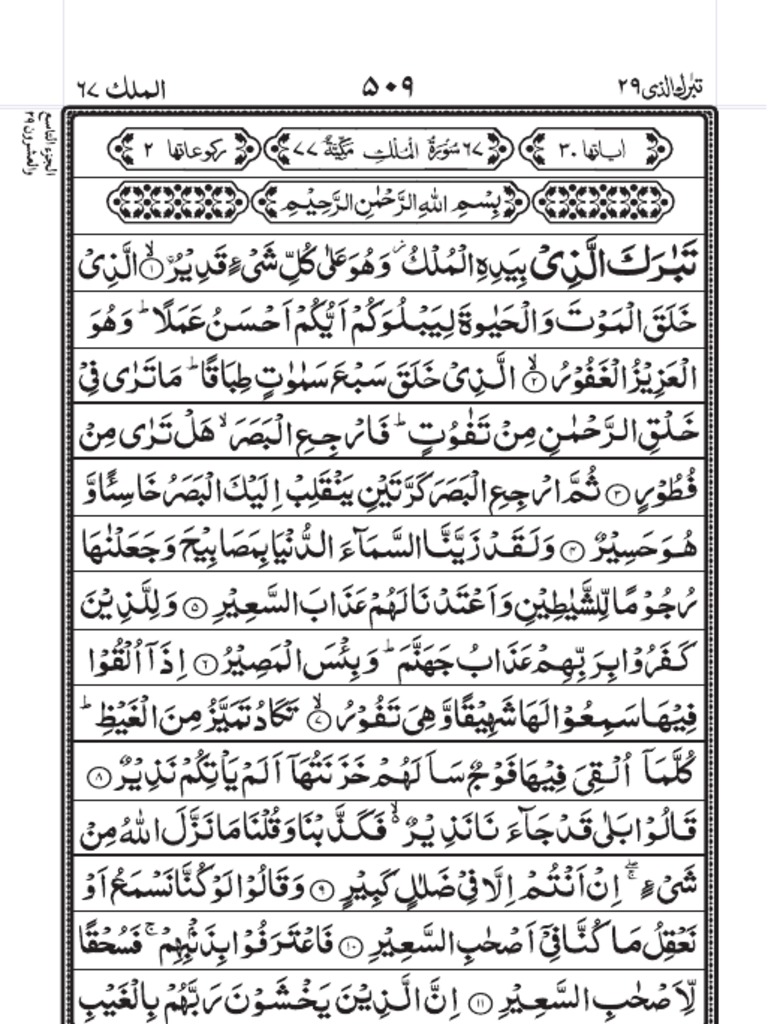 تبٰرك الذی ٢٩
٥٠٩
الملك ٦٧
الجزء التاسع
والعشرون ٢٩
اٰیاتها ٣٠
٦٧ سُوْرَةُ الْمُلْكِ مَكِّیَّةٌ ٧٧
رکوعاتها ٢
بِسْمِ اللهِ الرَّحْمٰنِ الرَّحِیْمِ
تَبٰرَكَ الَّذِیْ بِیَدِهِ الْمُلْكُ ز وَهُوَ عَلٰی كُلِّ شَیْءٍ قَدِیْرُۨ ۙ ﴿١﴾ الَّذِیْ
خَلَقَ الْمَوْتَ وَالْحَیٰوةَ لِیَبْلُوَكُمْ اَیُّكُمْ اَحْسَنُ عَمَلًا ؕ وَهُوَ
الْعَزِیْزُ الْغَفُوْرُ ۙ ﴿٢﴾ الَّذِیْ خَلَقَ سَبْعَ سَمٰوٰتٍ طِبَاقًا ؕ مَا تَرٰی فِیْ
خَلْقِ الرَّحْمٰنِ مِنْ تَفٰوُتٍ ؕ فَارْجِعِ الْبَصَرَ ۙ هَلْ تَرٰی مِنْ
فُطُوْرٍ ﴿٣﴾ ثُمَّ ارْجِعِ الْبَصَرَ كَرَّتَیْنِ یَنْقَلِبْ اِلَیْكَ الْبَصَرُ خَاسِئًا وَّ
هُوَ حَسِیْرٌ ﴿٤﴾ وَلَقَدْ زَیَّنَّا السَّمَآءَ الدُّنْیَا بِمَصَابِیْحَ وَجَعَلْنٰهَا
رُجُوْمًا لِّلشَّیٰطِیْنِ وَاَعْتَدْنَا لَهُمْ عَذَابَ السَّعِیْرِ ﴿٥﴾ وَلِلَّذِیْنَ
كَفَرُوْا بِرَبِّهِمْ عَذَابُ جَهَنَّمَ ؕ وَبِئْسَ الْمَصِیْرُ ﴿٦﴾ اِذَاۤ اُلْقُوْا
فِیْهَا سَمِعُوْا لَهَا شَهِیْقًا وَّهِیَ تَفُوْرُ ۙ ﴿٧﴾ تَكَادُ تَمَیَّزُ مِنَ الْغَیْظِ ؕ
كُلَّمَاۤ اُلْقِیَ فِیْهَا فَوْجٌ سَاَلَهُمْ خَزَنَتُهَاۤ اَلَمْ یَاْتِكُمْ نَذِیْرٌ ﴿٨﴾
قَالُوْا بَلٰی قَدْ جَآءَنَا نَذِیْرٌ ۙ فَكَذَّبْنَا وَقُلْنَا مَا نَزَّلَ اللهُ مِنْ
شَیْءٍ ۚ اِنْ اَنْتُمْ اِلَّا فِیْ ضَلٰلٍ كَبِیْرٍ ﴿٩﴾ وَقَالُوْا لَوْ كُنَّا نَسْمَعُ اَوْ
نَعْقِلُ مَا كُنَّا فِیْۤ اَصْحٰبِ السَّعِیْرِ ﴿١٠﴾ فَاعْتَرَفُوْا بِذَنْۢبِهِمْ ۚ فَسُحْقًا
لِّاَصْحٰبِ السَّعِیْرِ ﴿١١﴾ اِنَّ الَّذِیْنَ یَخْشَوْنَ رَبَّهُمْ بِالْغَیْبِ